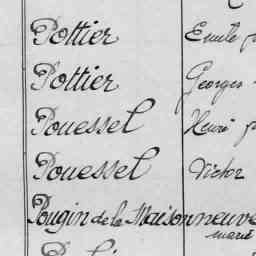 Pottier Emile
Pottier Georges
Pouessel Henri
Pouessel Victor
Pougin de la Maisonneuve
marie